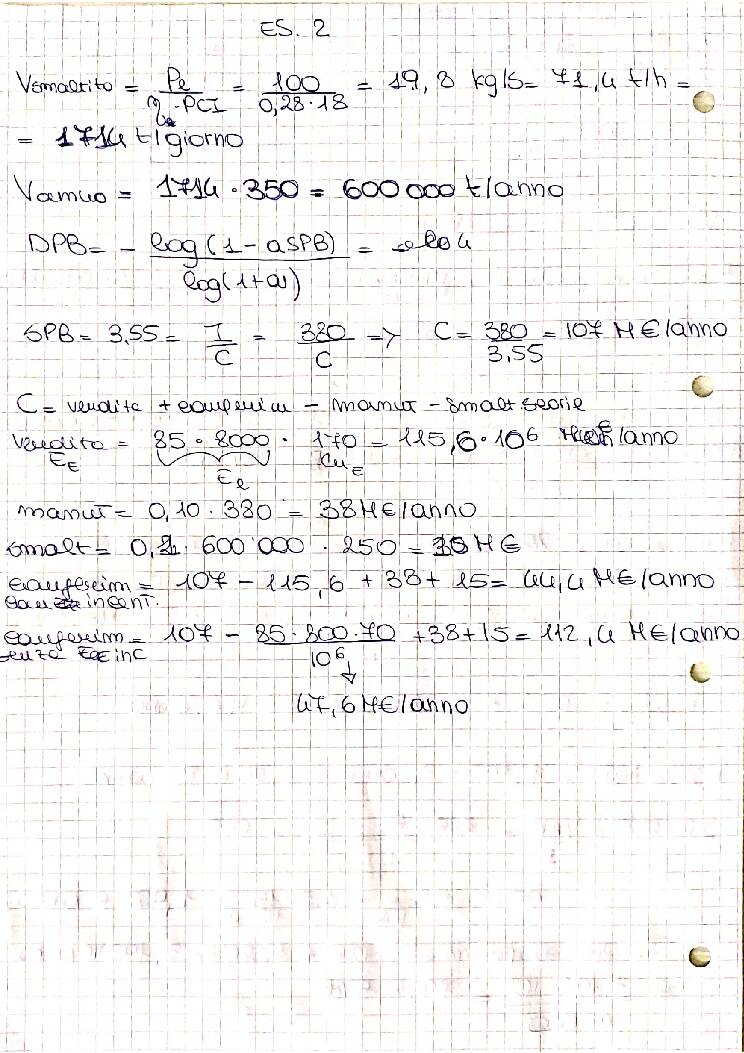 ES. 2
Vsmaltito = Pe / η · PCI = 100 / 0,28·18 = 19,8 kg/s = 71,4 t/h =
= 1714 t/giorno
Vannuo = 1714 · 350 = 600 000 t/anno
DPB = - log(1-aSPB) / log(1+a) =
SPB = 3,55 = I / C = 380 / C => C = 380 / 3,55 = 107 M€/anno
C = vendita + conferim - manut - smalt scorie
vendita EE = 85 · 8000 · 170 = 115,6·10⁶ €/anno
Ee CuE
manut = 0,10 · 380 = 38 M€/anno
smalt = 0,1 · 600 000 · 250 = M€
conferim = 107 - 115,6 + 38 + 15 = 44,4 M€/anno
incent.
conferim = 107 - 85·800·70 / 10⁶ + 38 + 15 = 112,4 M€/anno
senza inc
↓
47,6 M€/anno